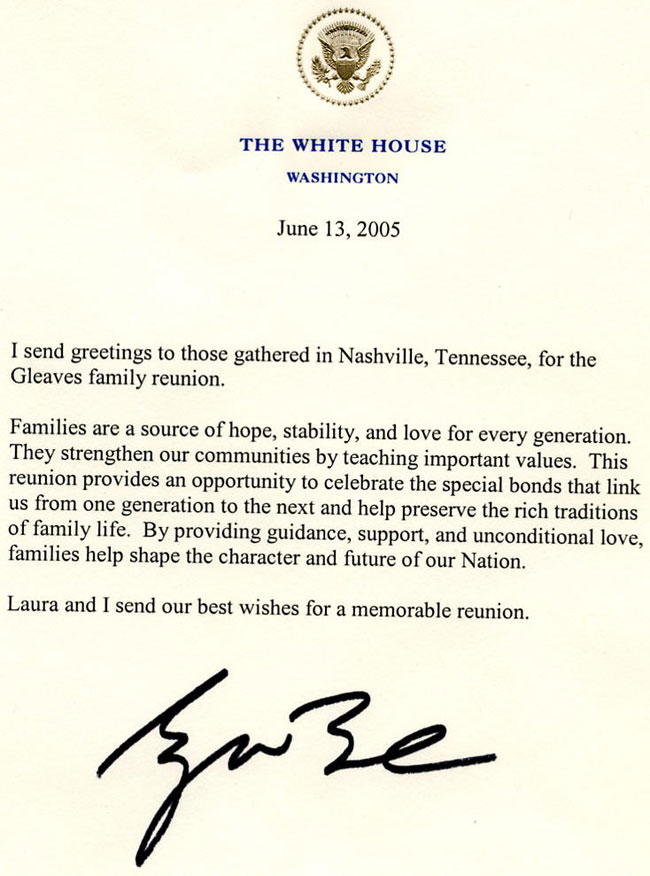 THE WHITE HOUSE
WASHINGTON
June 13, 2005
I send greetings to those gathered in Nashville, Tennessee, for the
Gleaves family reunion.
Families are a source of hope, stability, and love for every generation.
They strengthen our communities by teaching important values.  This
reunion provides an opportunity to celebrate the special bonds that link
us from one generation to the next and help preserve the rich traditions
of family life.  By providing guidance, support, and unconditional love,
families help shape the character and future of our Nation.
Laura and I send our best wishes for a memorable reunion.